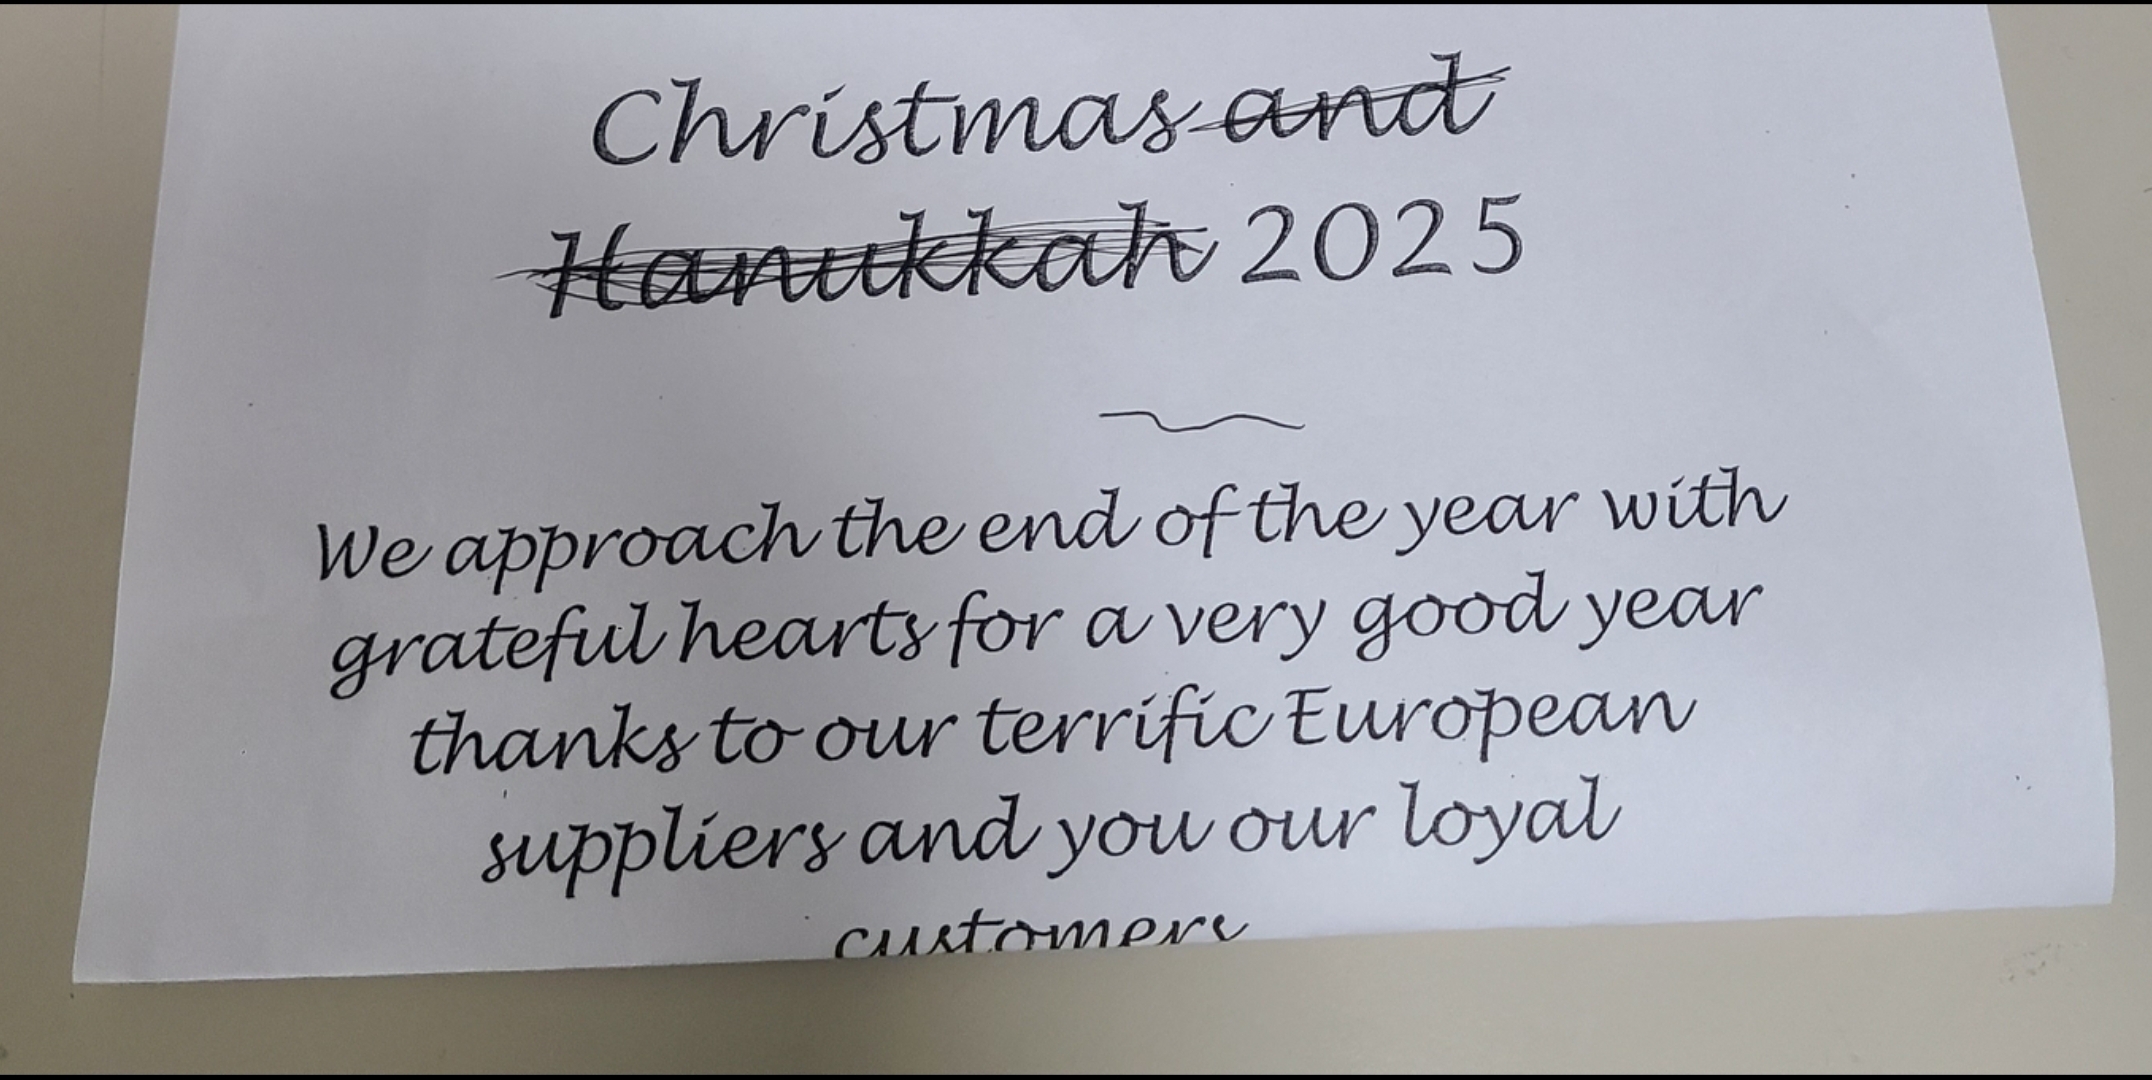 Christmas and
Hanukkah 2025
We approach the end of the year with
grateful hearts for a very good year
thanks to our terrific European
suppliers and you our loyal
customers